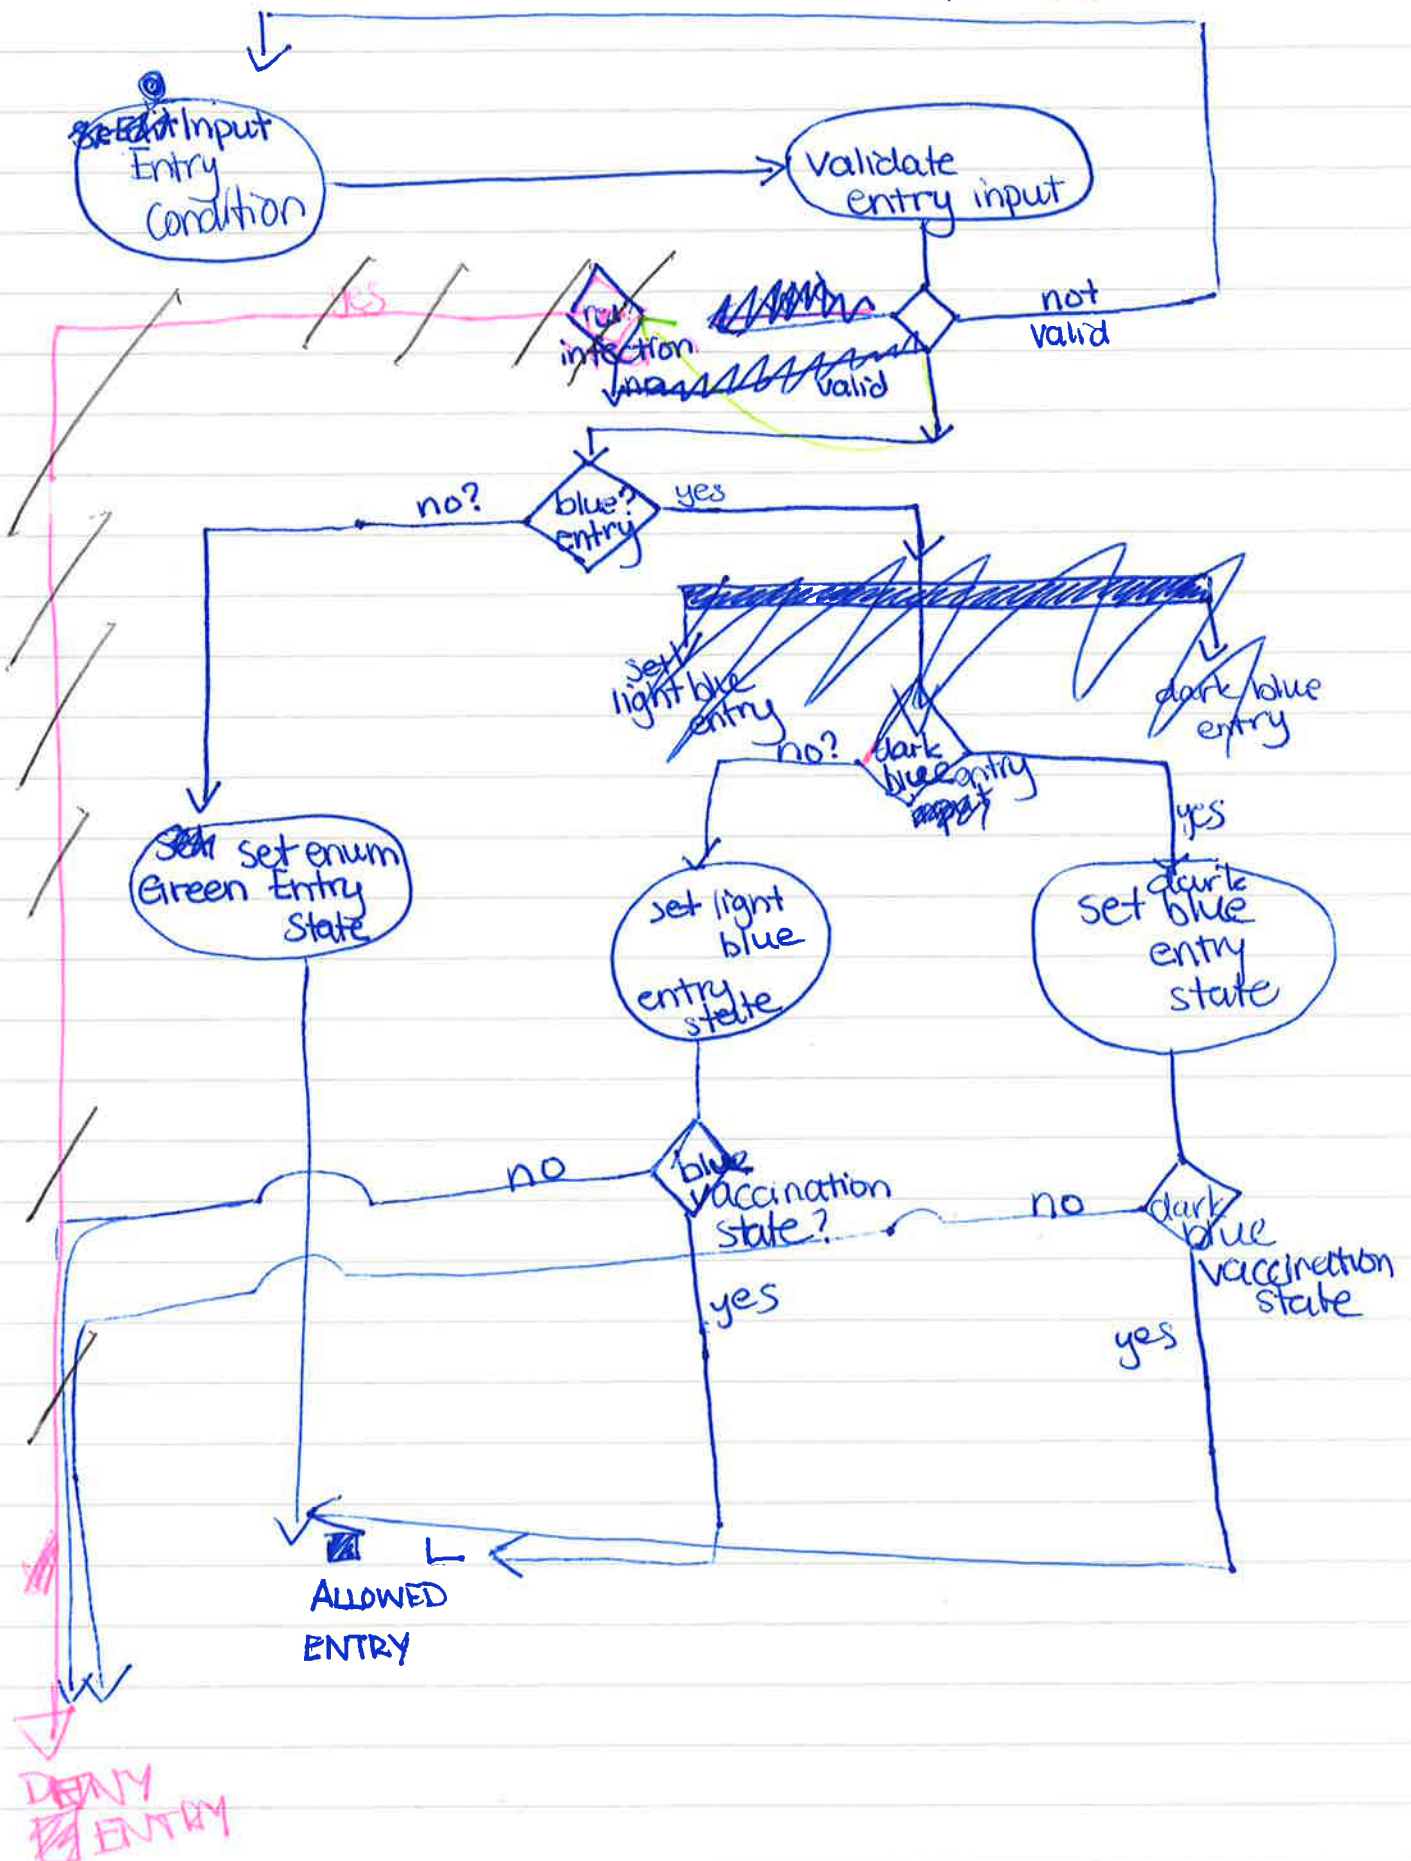 Input
Entry
Condition
validate
entry input
yes
not
valid
infection
no
valid
no?
blue?
yes
entry
set
light blue
entry
dark blue
entry
no?
dark
blue entry
yes
set enum
Green Entry
State
set light
blue
entry
state
dark
set blue
entry
state
no
blue
vaccination
state?
no
dark
blue
vaccination
state
yes
yes
ALLOWED
ENTRY
DENY
ENTRY